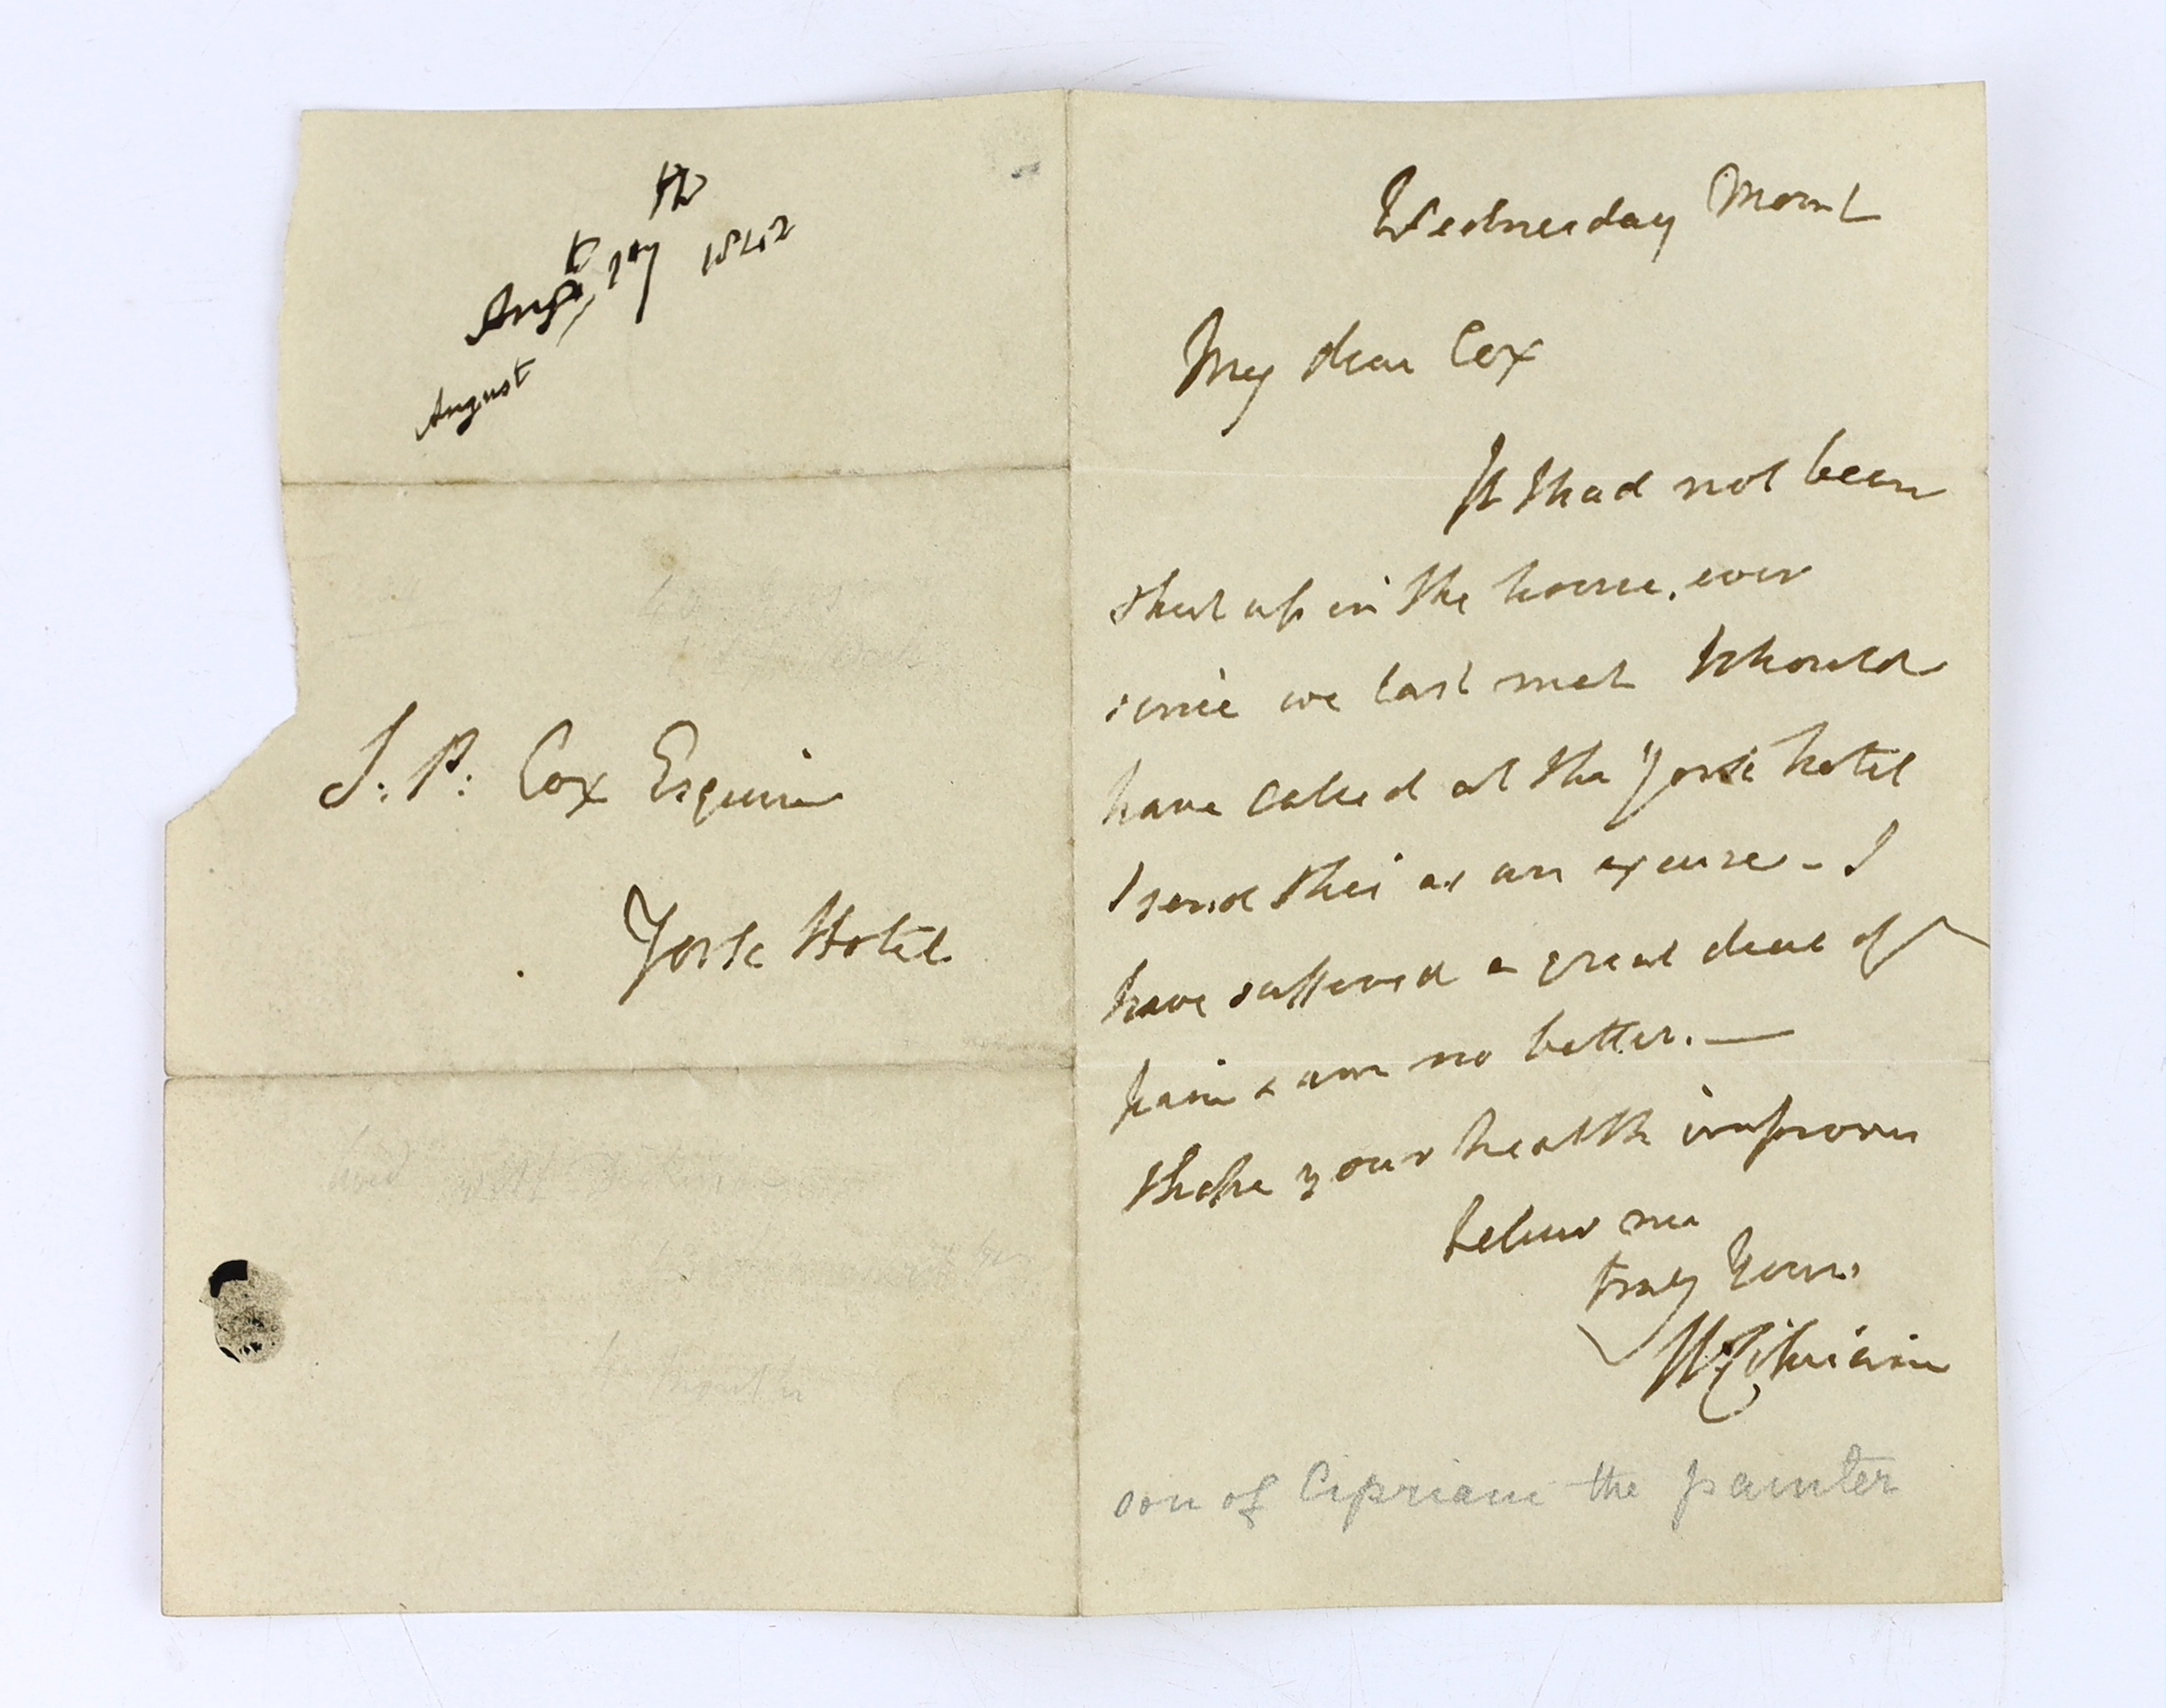 August
1842
J. P. Cox Esquire
York Hotel
Wednesday Morn
My dear Cox
If I had not been
shut up in the house, ever
since we last met I should
have called at the York hotel
I send this as an excuse - I
have suffered a great deal of
pain & am no better. —
I hope your health improves
believe me
truly yours
Cipriani
son of Cipriani the painter